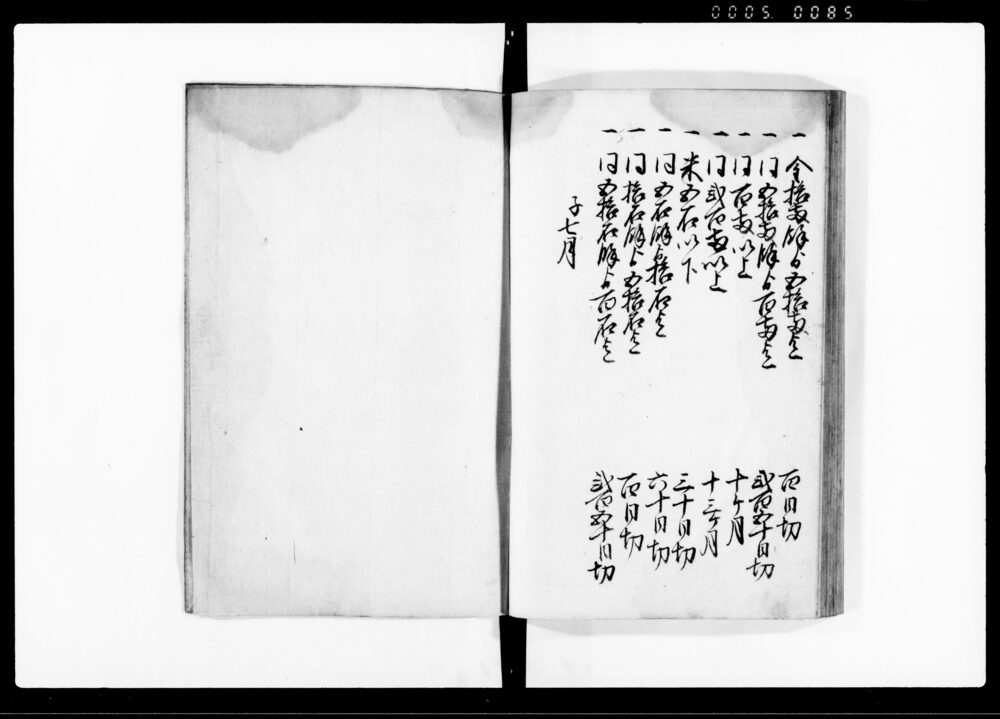 0005. 0085
一 金拾両餘ゟ五拾両迄 百日切
一 同五拾両餘ゟ百両迄 弐百五十日切
一 同百両以上 十ケ月
一 同弐百両以上 十三ケ月
一 米五石以下 三十日切
一 同五石餘ゟ拾石迄 六十日切
一 同拾石餘ゟ五拾石迄 百日切
一 同五拾石餘ゟ百石迄 弐百五十日切
子七月